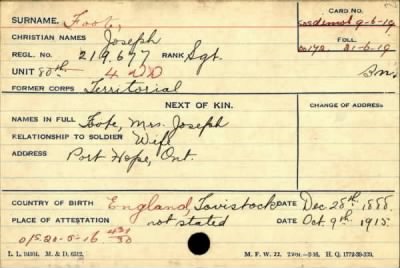 SURNAME. Foote, CARD NO.
CHRISTIAN NAMES Joseph
REGL. NO. 219.677 RANK Sgt. FOLL.
UNIT 80th
FORMER CORPS Territorial
NEXT OF KIN. CHANGE OF ADDRESS
NAMES IN FULL Foote, Mrs. Joseph
RELATIONSHIP TO SOLDIER Wife
ADDRESS Port Hope, Ont.
COUNTRY OF BIRTH England, Tavistock DATE Dec 28th 1888.
PLACE OF ATTESTATION not stated DATE Oct. 9th 1915
O/S 20-5-16 431/30
L. L. 94304. M. & D. 6512. M. F. W. 22.